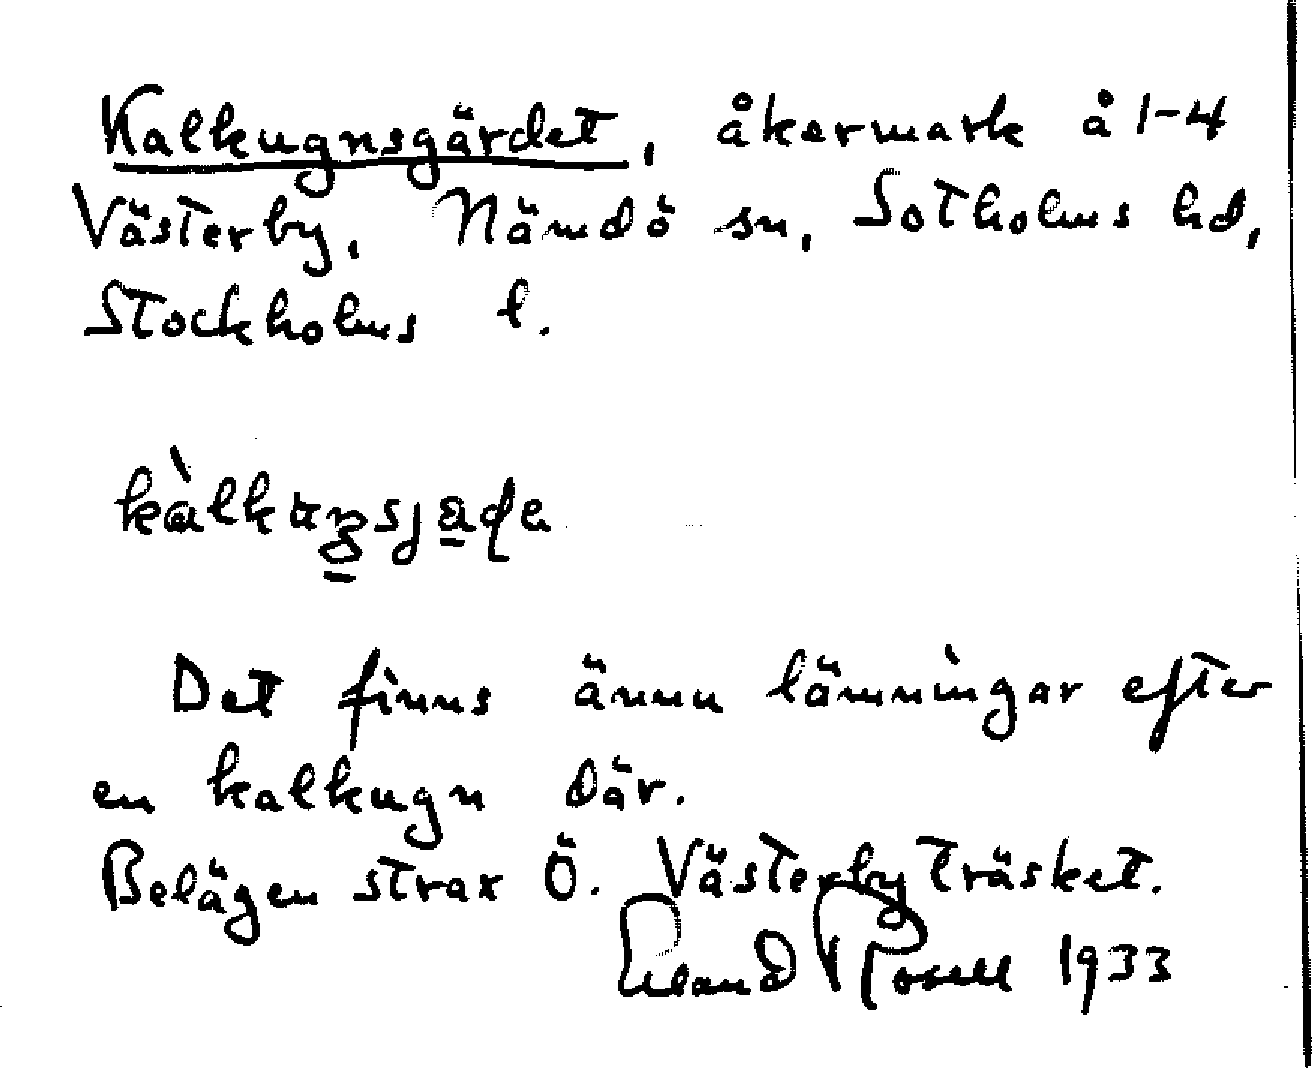 Kalkugnsgärdet, åkermark å 1-4
Västerby, Nämdö sn, Sotholms hd,
Stockholms l.
Det finns ännu lämningar efter
en kalkugn där.
Belägen strax Ö. Västerbyträsket.
Erland Rosell 1933